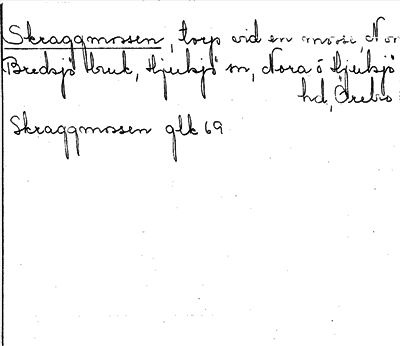 Skraggmossen, torp vid en mosse, No
Bredsjö bruk, Hjulsjö sn, Nora o Hjulsjö
hd, Örebro
Skraggmossen glk 69